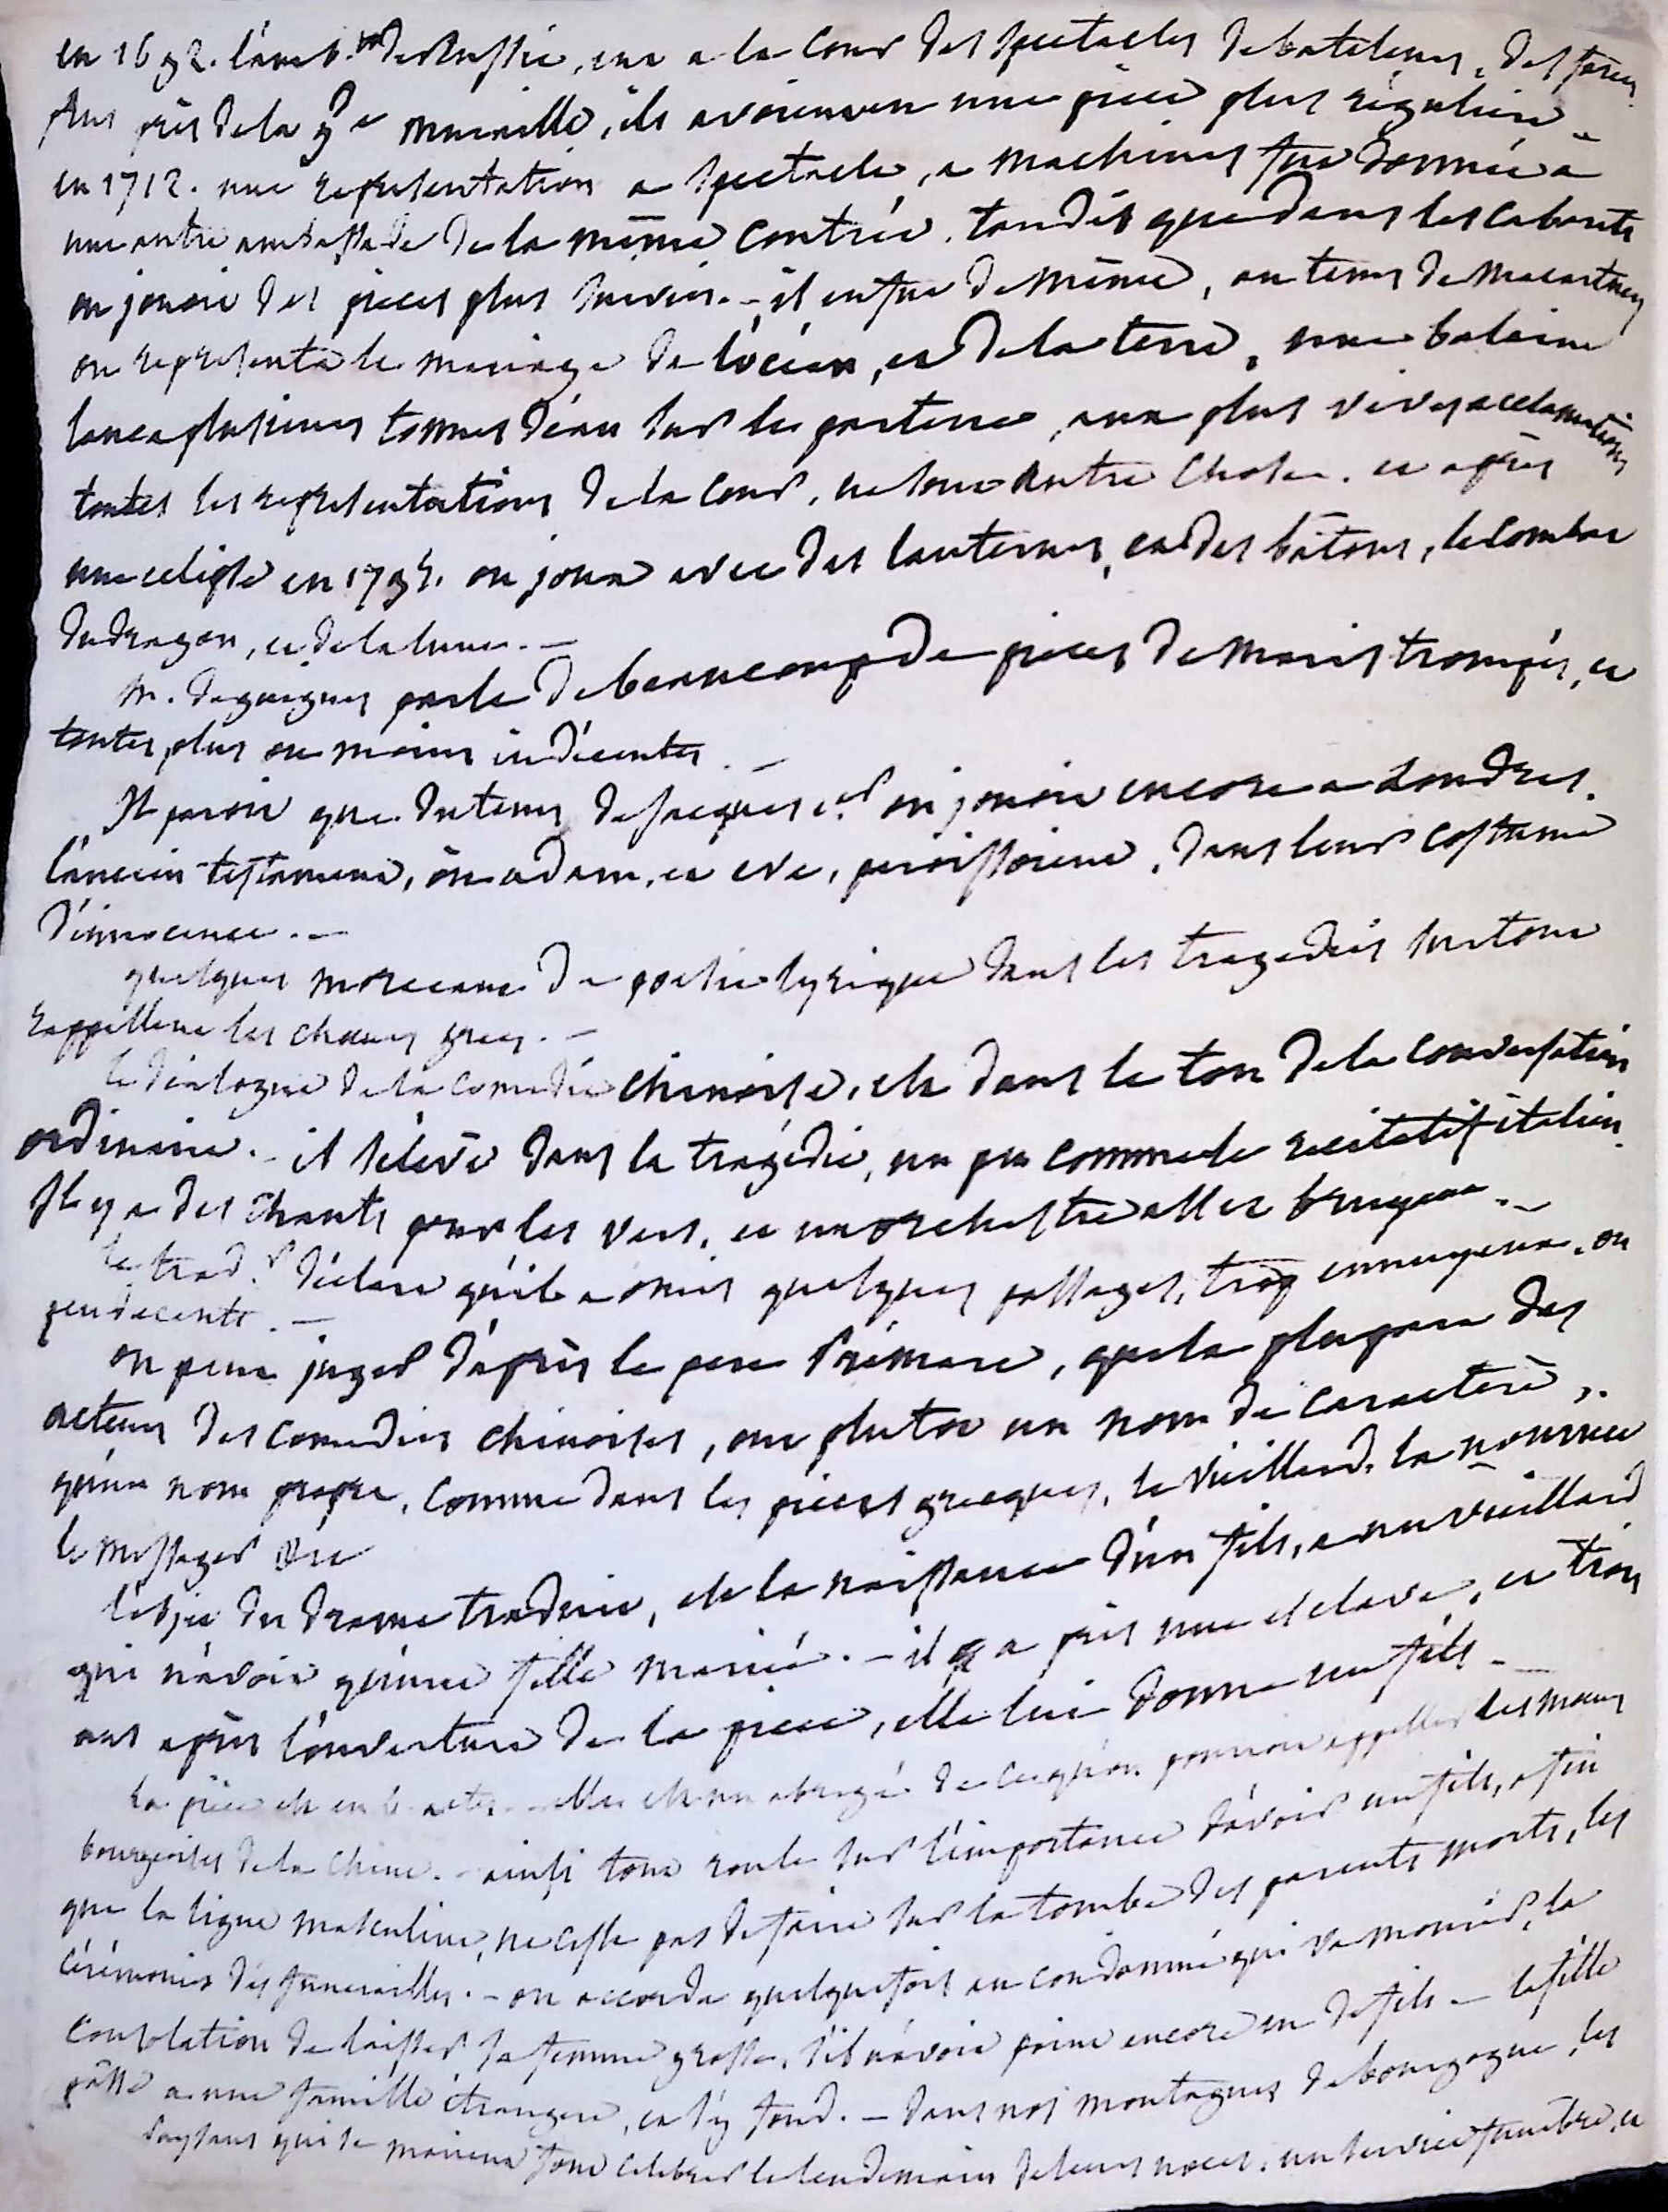 en 1692. l'amb.de de Russie, eut a la cour des spectacles de bateleurs, des farces
plus près de la gde muraille, ils avoient vu une pièce plus régulière -
en 1712. une representation a spectacle, a machines fut donnée à
une autre ambassade de la même contrée. tandis que dans les cabarets
on jouoit des pieces plus suivies. - il en fut de même, au tems de Macartney
on representa le mariage de l'océan, et de la terre, une baleine
lança plusieurs tonnes d'eau sur le parterre, aux plus vives acclamations
toutes les representations de la cour, ne sont autre chose. et après
une eclipse en 1795. on joua avec des lanternes, et des bâtons, le combat
du dragon, et de la lune. -
M. deguignes parle de beaucoup de pieces de maris trompés, et
toutes, plus ou moins indécentes. -
Il paroit que du tems de Jacques 1er on jouoit encore a Londres.
l'ancien testament, où adam, et eve, paroissoient, dans leur costume
d'innocence. -
quelques morceaux de poesie lyrique dans les tragedies surtout
rappellent les choeurs grecs. -
le dialogue de la comedie chinoise, est dans le ton de la conversation
ordinaire. - il s'élève dans la tragédie, un peu comme le recitatif italien.
Il y a des chants pour les vers, et un orchestre assez bruyant. -
le trad.r déclare qu'il a omis quelques passages, trop ennuyeux, ou
peu decents. -
on peut juger d'après le pere Prémare, que la plupart des
acteurs des comedies chinoises, ont plutot un nom de caractère,
qu'un nom propre, comme dans les pieces grecques, le vieillard, la nourrice
le messager &c
l'objet du drame traduit, est la naissance d'un fils, a un vieillard
qui n'avoit qu'une fille mariée. - il a pris une esclave, et trois
ans après l'ouverture de la piece, elle lui donne un fils. -
la pièce est en 5 actes - elle est un abrégé de ce qu'on pourroit appeller les moeurs
bourgeoises de la Chine. - ainsi tout roule sur l'importance d'avoir un fils, afin
que la ligne masculine, ne cesse pas de faire sur la tombe des parents morts, les
cérémonies des funerailles. - on accorde quelquefois au condamné qui va mourir, la
consolation de laisser sa femme grosse, s'il n'avoit point encore eu de fils - la fille
passe a une famille étrangere, et s'y fond. - dans nos montagnes de bourgogne, les
paysans qui se marient font celebrer le lendemain de leurs noces, un service funebre, et